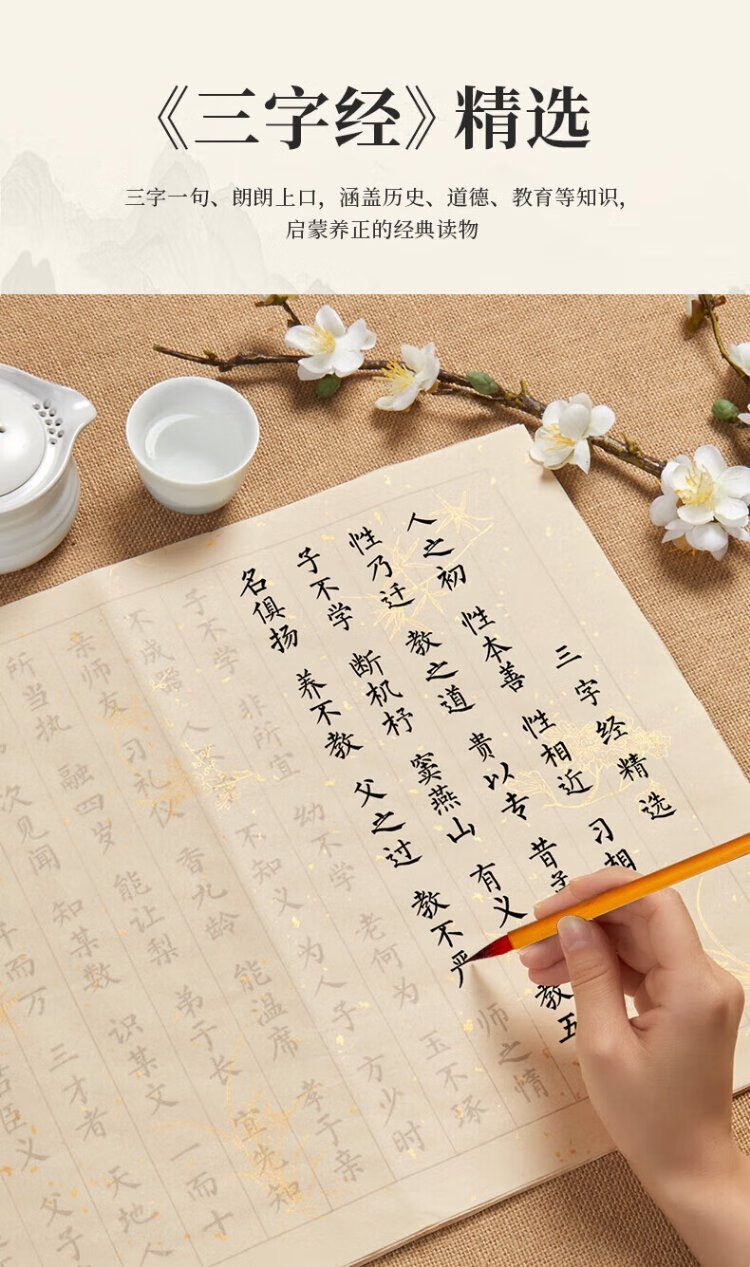 《三字经》精选
三字一句、朗朗上口，涵盖历史、道德、教育等知识，
启蒙养正的经典读物
三字经精选
人之初 性本善 性相近 习相
性乃迁 教之道 贵以专 昔
子不学 断机杼 窦燕山 有义 教五
名俱扬 养不教 父之过 教不严 师之情
子不学 非所宜 幼不学 老何为 玉不琢
不成器 人不学 不知义 为人子 方少时
亲师友 习礼仪 香九龄 能温席 孝于亲
所当执 融四岁 能让梨 弟于长 宜先知
次见闻 知某数 识某文 一而十
而万 三才者 天地人
臣义 父子